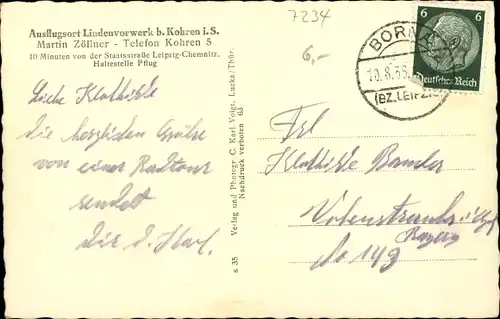 Ausflugsort Lindenvorwerk b. Kohren i. S.
Martin Zöllner - Telefon Kohren 5
10 Minuten von der Staatsstraße Leipzig-Chemnitz,
Haltestelle Pflug
7234
6,-
BORNA
10.8.35
(BZ. LEIPZIG)
6 6
Deutsches Reich
Liebe Klothilde
die herzlichen Grüße
von einer Radtour
sendet
Dir d. Karl.
Verlag und Photogr. C. Karl Voigt, Lucka/Thür.
Nachdruck verboten 63
s 35
Frl
Klothilde
Vohenstrauß
No 149
Bayern